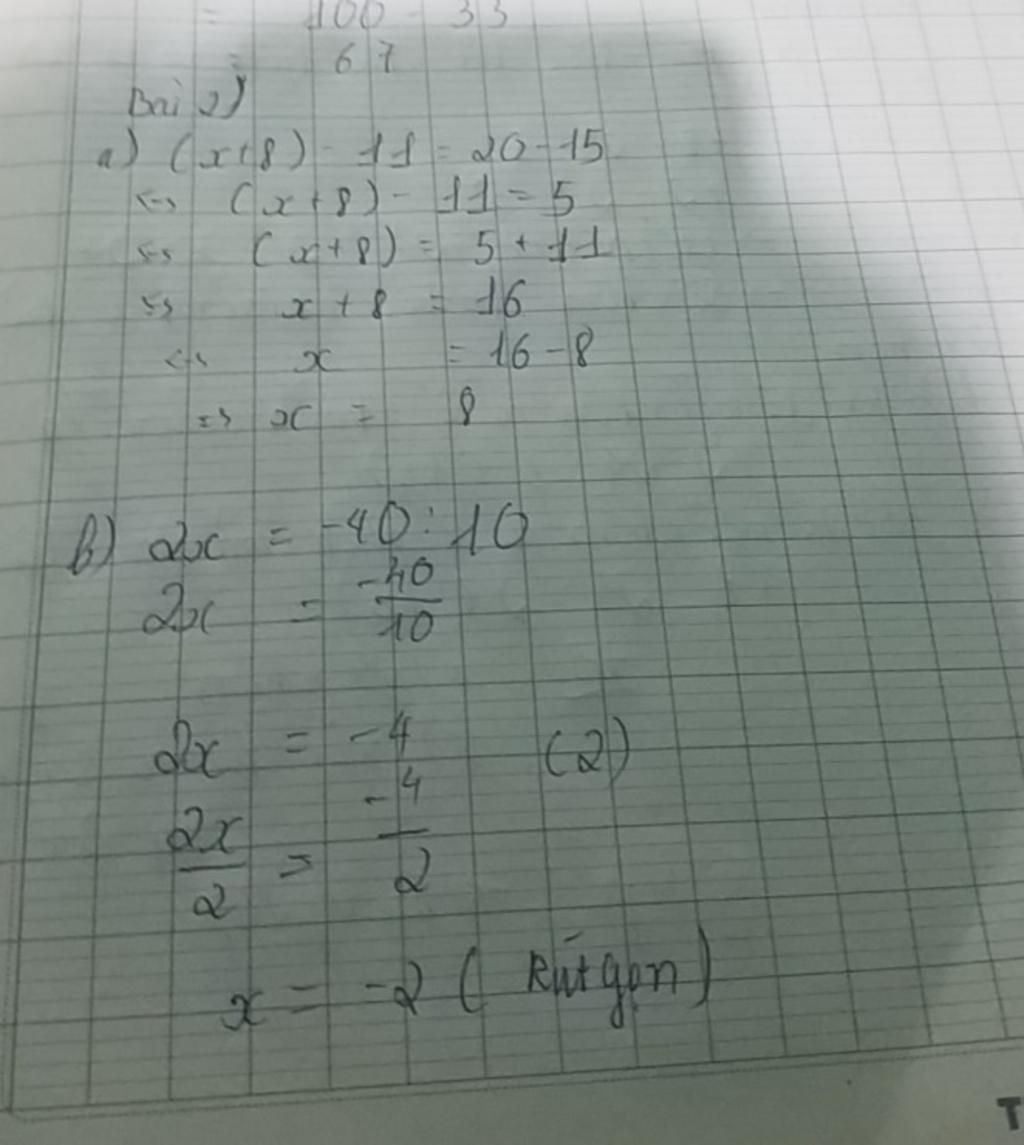 = 100 - 33
= 67
Bài 2)
a) (x+8) - 11 = 20 - 15
<=> (x+8) - 11 = 5
<=> (x+8) = 5 + 11
<=> x + 8 = 16
<=> x = 16 - 8
=> x = 8
b) 2x = -40 : 10
2x = -40/10
2x = -4 (2)
2x/2 = -4/2
x = -2 (Rút gọn)
T